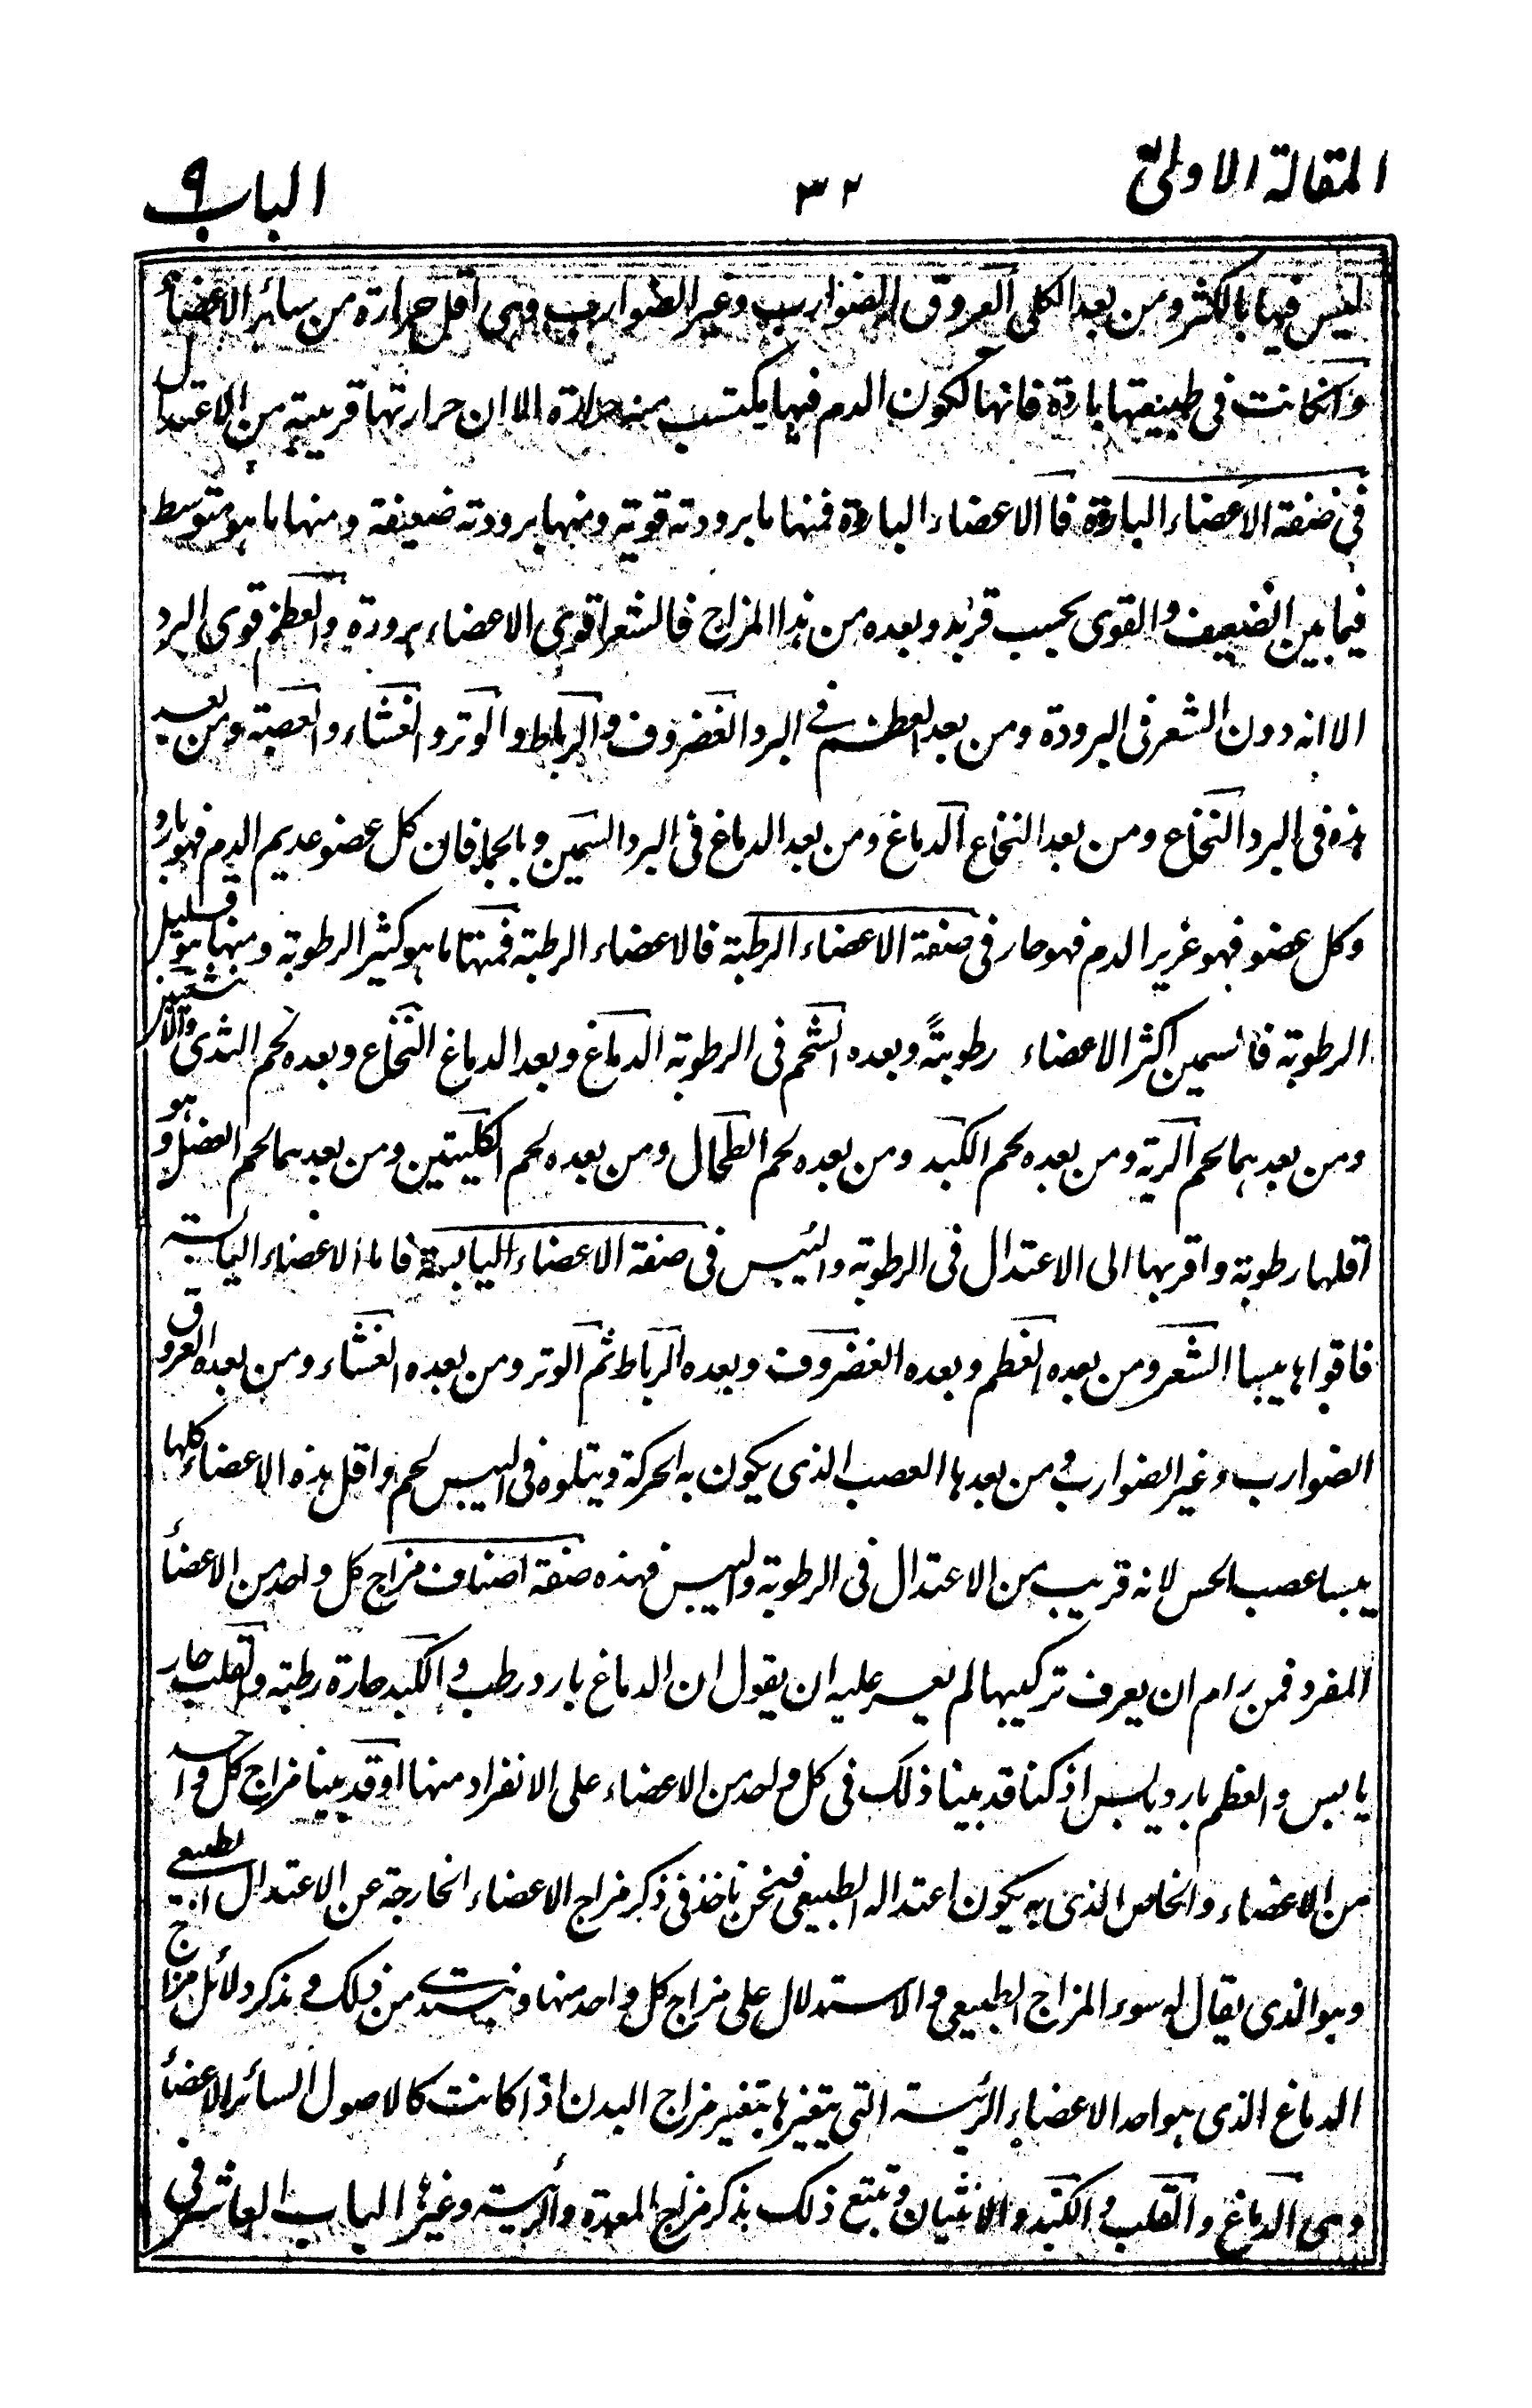 المقالة الاولى ٣٢ الباب ٩
ليس فيها بالكثر ومن بعد الكلى العروق الضوارب وغير الضوارب وهى اقل حرارة من سائر الاعضاء
وانكانت فى طبيعتها باردة فانها لكون الدم فيها يكتسب منه حرارة الا ان حرارتها قريبة من الاعتدال
فى صنفة الاعضاء الباردة فا الاعضاء الباردة فمنها ما برودته قوية ومنها برودته ضعيفة ومنها ما هو متوسط
فيما بين الضعيف والقوى بحسب قربه وبعده من هذا المزاج فالشعر اقوى الاعضاء برودة والعظم قوى البرد
الا انه دون الشعر فى البرودة ومن بعد العظم فى البرد الغضروف والرباط والوتر والغشاء والعصبة ومن بعد
هذه فى البرد النخاع ومن بعد النخاع الدماغ ومن بعد الدماغ فى البرد السمين وبالجملة فان كل عضو عديم الدم فهو بارد
وكل عضو فهو غرير الدم فهو حار فى صنفة الاعضاء الرطبة فالاعضاء الرطبة فمنها ما هو كثير الرطوبة ومنها هو قليل
الرطوبة فالسمين اكثر الاعضاء رطوبةً وبعده الشحم فى الرطوبة الدماغ وبعد الدماغ النخاع وبعده لحم الثدى والانثيين
ومن بعدهما لحم الرية ومن بعده لحم الكبد ومن بعده لحم الطحال ومن بعده لحم الكليتين ومن بعدهما لحم العضل وهو
اقلها رطوبة واقربها الى الاعتدال فى الرطوبة واليبس فى صنفة الاعضاء اليابسة فاما الاعضاء اليابسة
فاقواها يبسا الشعر ومن بعده العظم وبعده الغضروف وبعده الرباط ثم الوتر ومن بعده الغشاء ومن بعده العروق
الضوارب وغير الضوارب و من بعدها العصب الذى يكون به الحركة ويتلوه فى اليبس لحم واقل هذه الاعضاء كلها
يبسا عصب الحس لانه قريب من الاعتدال فى الرطوبة واليبس فهذه صنفة اصناف مزاج كل واحد من الاعضاء
المفرد فمن رام ان يعرف تركيبها لم يعسر عليه ان يقول ان الدماغ بارد رطب والكبد حارة رطبة والقلب حار
يابس والعظم بارد يابس اذ كنا قد بينا ذلك فى كل واحد من الاعضاء على الانفراد منها او قد بينا مزاج كل واحد
من الاعضاء والخاص الذى به يكون اعتداله الطبيعى فنحن ناخذ فى ذكر مزاج الاعضاء الخارجة عن الاعتدال الطبيعى
وهو الذى يقال له سوء المزاج الطبيعى والاستدلال على مزاج كل واحد منها ونبتدى من ذلك و بذكر دلائل مزاج
الدماغ الذى هو احد الاعضاء الرئيسة التى بتغيرها يتغير مزاج البدن اذ كانت كالاصول لسائر الاعضاء
وهى الدماغ والقلب والكبد والانثيان ونتبع ذلك بذكر مزاج المعدة والرية وغيرها الباب العاشر فى